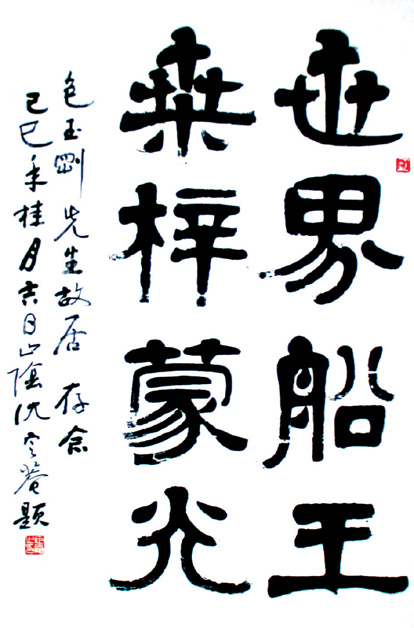 世界船王
桑梓蒙光
包玉剛先生故居 存念
己巳年桂月吉日山陰沈定菴題